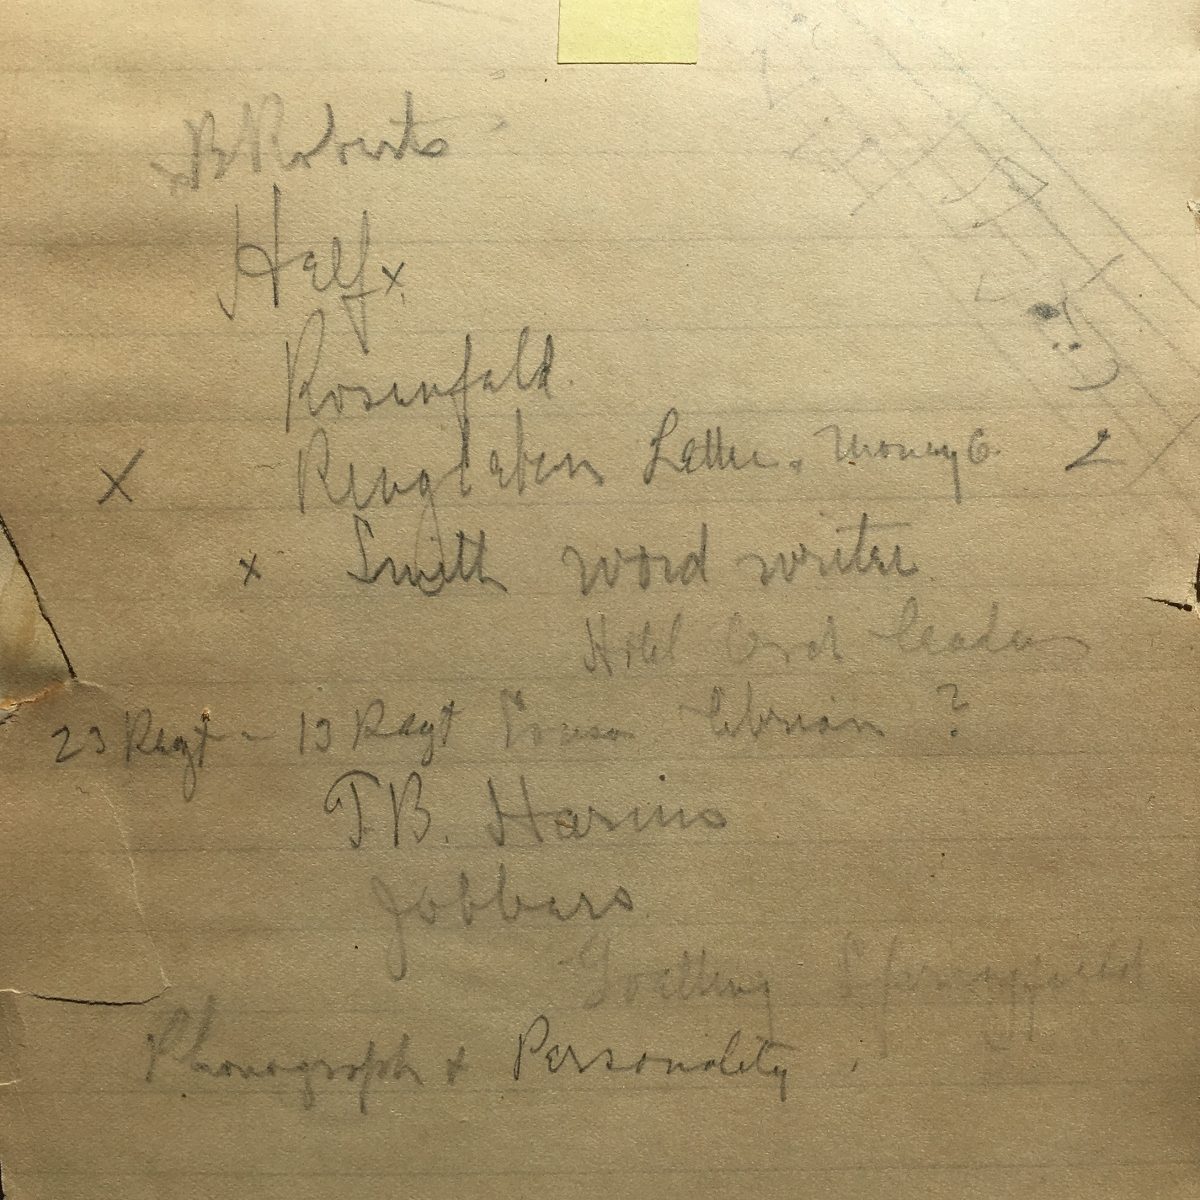 x B Roberts
Helf x
Rosenfeld.
X Ringleben Letter. Money 6. 2
x Smith word writer
Hotel Orch leader
23 Regt - 13 Regt Sousa ?
T.B. Harms
Jobbers
Goetting Springfield
Phonograph + Personality.